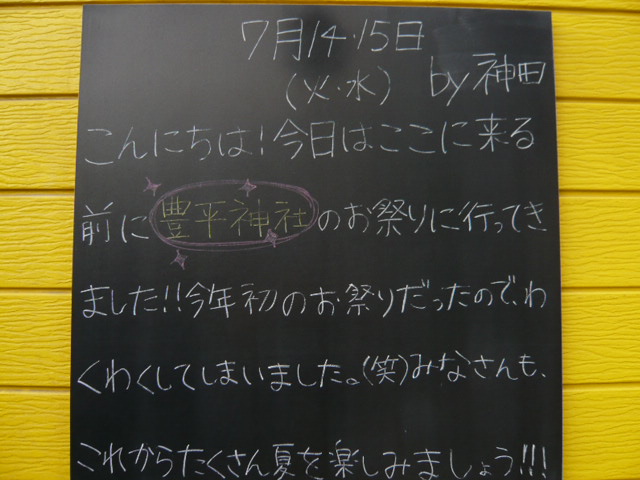 7月14・15日
(火・水) by 神田
こんにちは!今日はここに来る
前に豊平神社のお祭りに行ってき
ました!!今年初のお祭りだったので、わ
くわくしてしまいました。(笑)みなさんも、
これからたくさん夏を楽しみましょう!!!